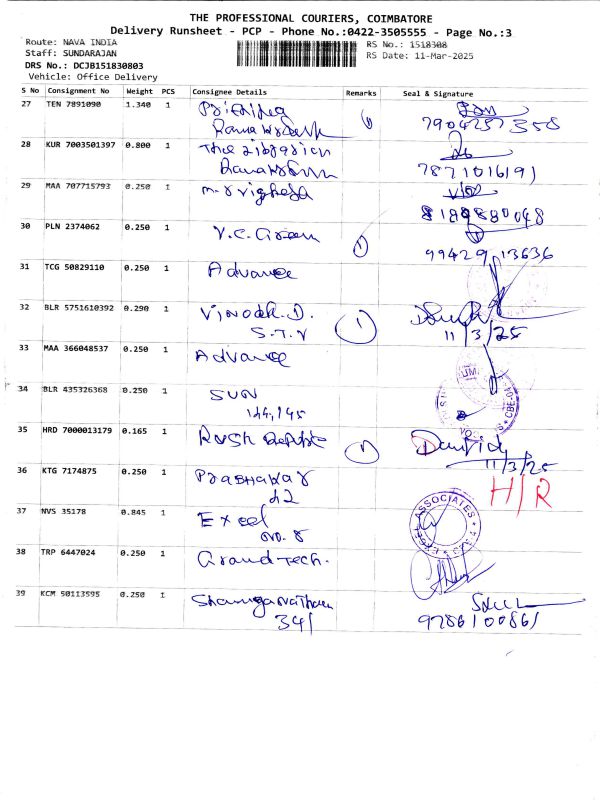 THE PROFESSIONAL COURIERS, COIMBATORE
Delivery Runsheet - PCP - Phone No.:0422-3505555 - Page No.:3
Route: NAVA INDIA
RS No.: 1518308
Staff: SUNDARAJAN
RS Date: 11-Mar-2025
DRS No.: DCJB151830803
Vehicle: Office Delivery
S No Consignment No Weight PCS Consignee Details Remarks Seal & Signature
27 TEN 7891090 1.340 1
7904257358
28 KUR 7003501397 0.800 1
7871016191
29 MAA 707715793 0.250 1 M. Vighesh
8189880048
30 PLN 2374062 0.250 1 V.C. Green 1
99429 13636
31 TCG 50829110 0.250 1 Advance
32 BLR 5751610392 0.290 1 Vinoth. D. 1
S.T.V 11/3/25
33 MAA 366048537 0.250 1 Advance
34 BLR 435326368 0.250 1 SUN
144,145
CBE-04
35 HRD 7000013179 0.165 1 1 David
11/3/25
36 KTG 7174875 0.250 1 Prabhakar H/R
42
37 NVS 35178 0.845 1 Excel
EXCEL ASSOCIATES
38 TRP 6447024 0.250 1 Grand Tech.
39 KCM 50113595 0.250 1
341 9786100861